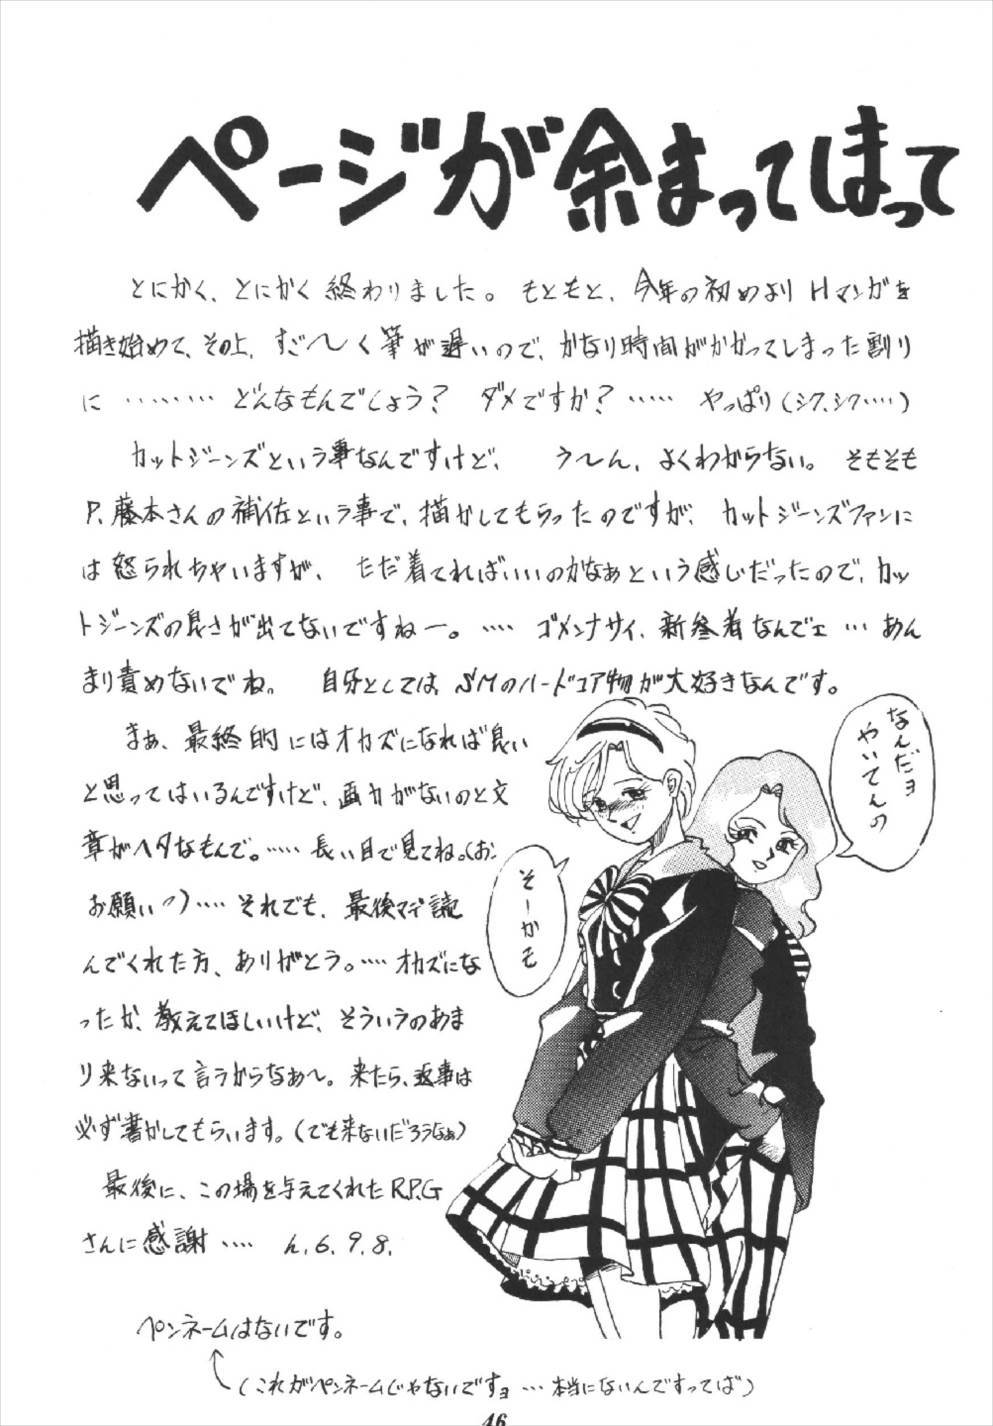 ページが余まってしまって
とにかく、とにかく終わりました。もともと、今年の初めよりHマンガを
描き始めて、その上、すご〜く筆が遅いので、かなり時間がかかってしまった割り
に ……… どんなもんでしょう？ ダメですか？ …… やっぱり（シク、シク……）
カットジーンズという事なんですけど、 う〜ん、よくわからない。そもそも
P.藤本さんの補佐という事で、描かしてもらったのですが、カットジーンズファンに
は怒られちゃいますが、ただ着てればいいのかなぁという感じだったので、カッ
トジーンズの良さが出てないですねー。…. ゴメンナサイ、新参者なんでェ … あん
まり責めないでね。 自分としては、SMのハードコア物が大好きなんです。
まぁ、最終的にはオカズになれば良い
と思ってはいるんですけど、画力がないのと文
章がヘタなもんで。…… 長い目で見てね。（お
お願いっ）…… それでも、最後マデ読
んでくれた方、ありがとう。…. オカズにな
ったか、教えてほしいけど、そういうのあま
り来ないって言うからなあ〜。来たら、返事は
必ず書かしてもらいます。（でも来ないだろうなぁ）
最後に、この場を与えてくれたR.P.G
さんに感謝 …. h.6.9.8.
なんだョ
やいてんの
そーかも
ペンネームはないです。
（これがペンネームじゃないですョ … 本当にないんですってば）
46